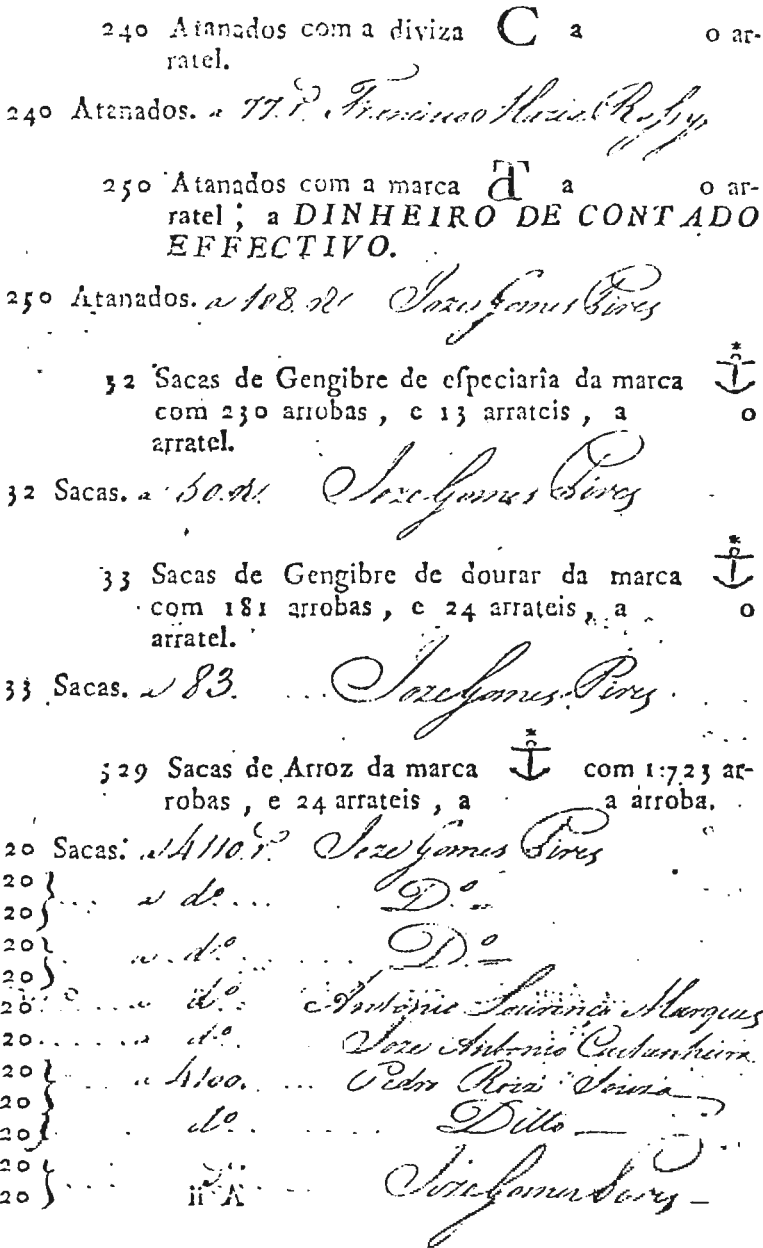 240 Atanados com a diviza C a o ar-
ratel.
240 Atanados. a 77 r.^s Francisco Maria
250 Atanados com a marca a o ar-
ratel; a DINHEIRO DE CONTADO
EFFECTIVO.
250 Atanados. a 108 Joze Gomes Pires
32 Sacas de Gengibre de eſpeciaria da marca
com 230 arrobas, e 13 arrateis, a o
arratel.
32 Sacas. a 50 Joze Gomes Pires
33 Sacas de Gengibre de dourar da marca
com 181 arrobas, e 24 arrateis, a o
arratel.
33 Sacas. a 83. Joze Gomes Pires
529 Sacas de Arroz da marca com 1:723 ar-
robas, e 24 arrateis, a a arroba.
20 Sacas. a 4110 r. Joze Gomes Pires
20
20 a d.º D.º
20
20 a d.º D.º
20 a d.º Antonio Lourenço Marques
20 a d.º Joze Antonio Castanheira
20 a 4100. Pedro Roiz Souza
20
20 d.º Ditto
20
20 Joze Gomes Pires